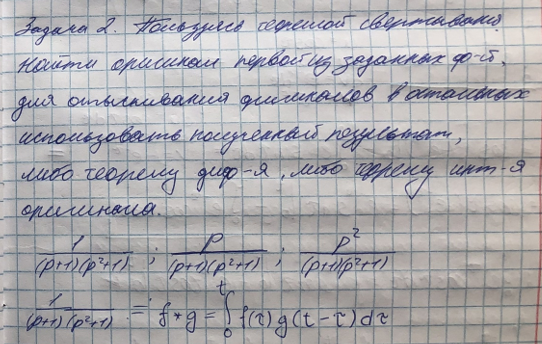 Задача 2. Пользуясь теоремой свертывания
найти оригинал первой из заданных ф-й,
для отыскивания оригиналов в остальных
использовать полученный результат,
либо теорему диф-я, либо теорему инт-я
оригинала.
1/((p+1)(p²+1)) ; p/((p+1)(p²+1)) ; p²/((p+1)(p²+1))
1/((p+1)(p²+1)) ≓ f * g = ∫₀ᵗ f(τ) g(t-τ) dτ